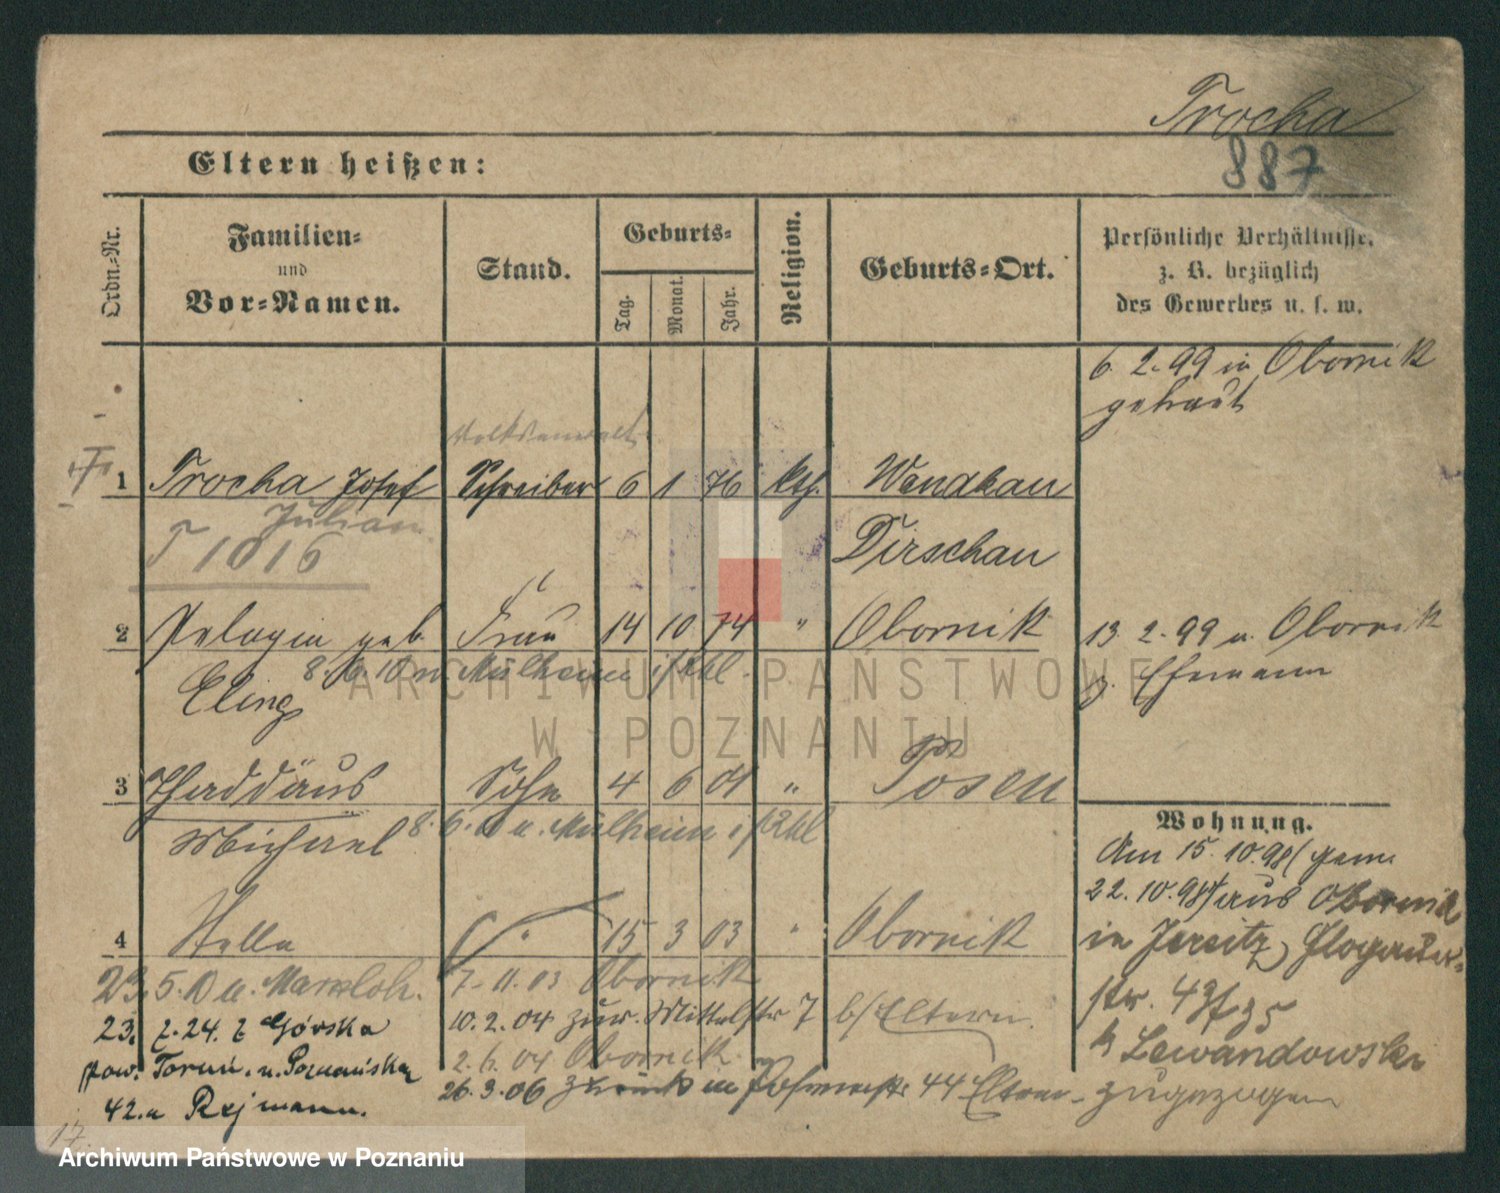 Trocha
887
Eltern heißen:
Ordn.-Nr.
Familien-
und
Vor-Namen.
Stand.
Geburts-
Tag.
Monat.
Jahr.
Religion.
Geburts-Ort.
Persönliche Verhältnisse,
z. B. bezüglich
des Gewerbes u. s. w.
6. 2. 99 in Obornik
getraut
Volksanwalt
1 Trocha Josef Schreiber 6 1 76 kth. Wendkau
Julian
Dirschau
T 1016
2 Pelagia geb. Frau 14 10 74 " Obornik
13. 2. 99 v. Obornik
8. 6. 10 n. Mülheim
z. Ehemann
Eling
3 Thaddäus Sohn 4 6 01 " Posen
Michael
8. 6. n. Mülheim
Wohnung.
Am 15. 10. 98
22. 10. 98 aus Obornik
4 Stella " 15 3 03 " Obornik
in Jersitz, Glogauer-
str. 43
23. 5. 10 n. 7. 11. 03 Obornik
23. 7. 24. z Górska
10. 2. 04 zur. Mittelstr 7 b/Eltern.
pow. Toruń. n. Poznańska
2. 6. 04 Obornik.
b Lewandowski
26. 3. 06 zurück in 44 Eltern zugezogen
42. a Rejmann.
17.
ARCHIWUM PAŃSTWOWE
W POZNANIU
Archiwum Państwowe w Poznaniu